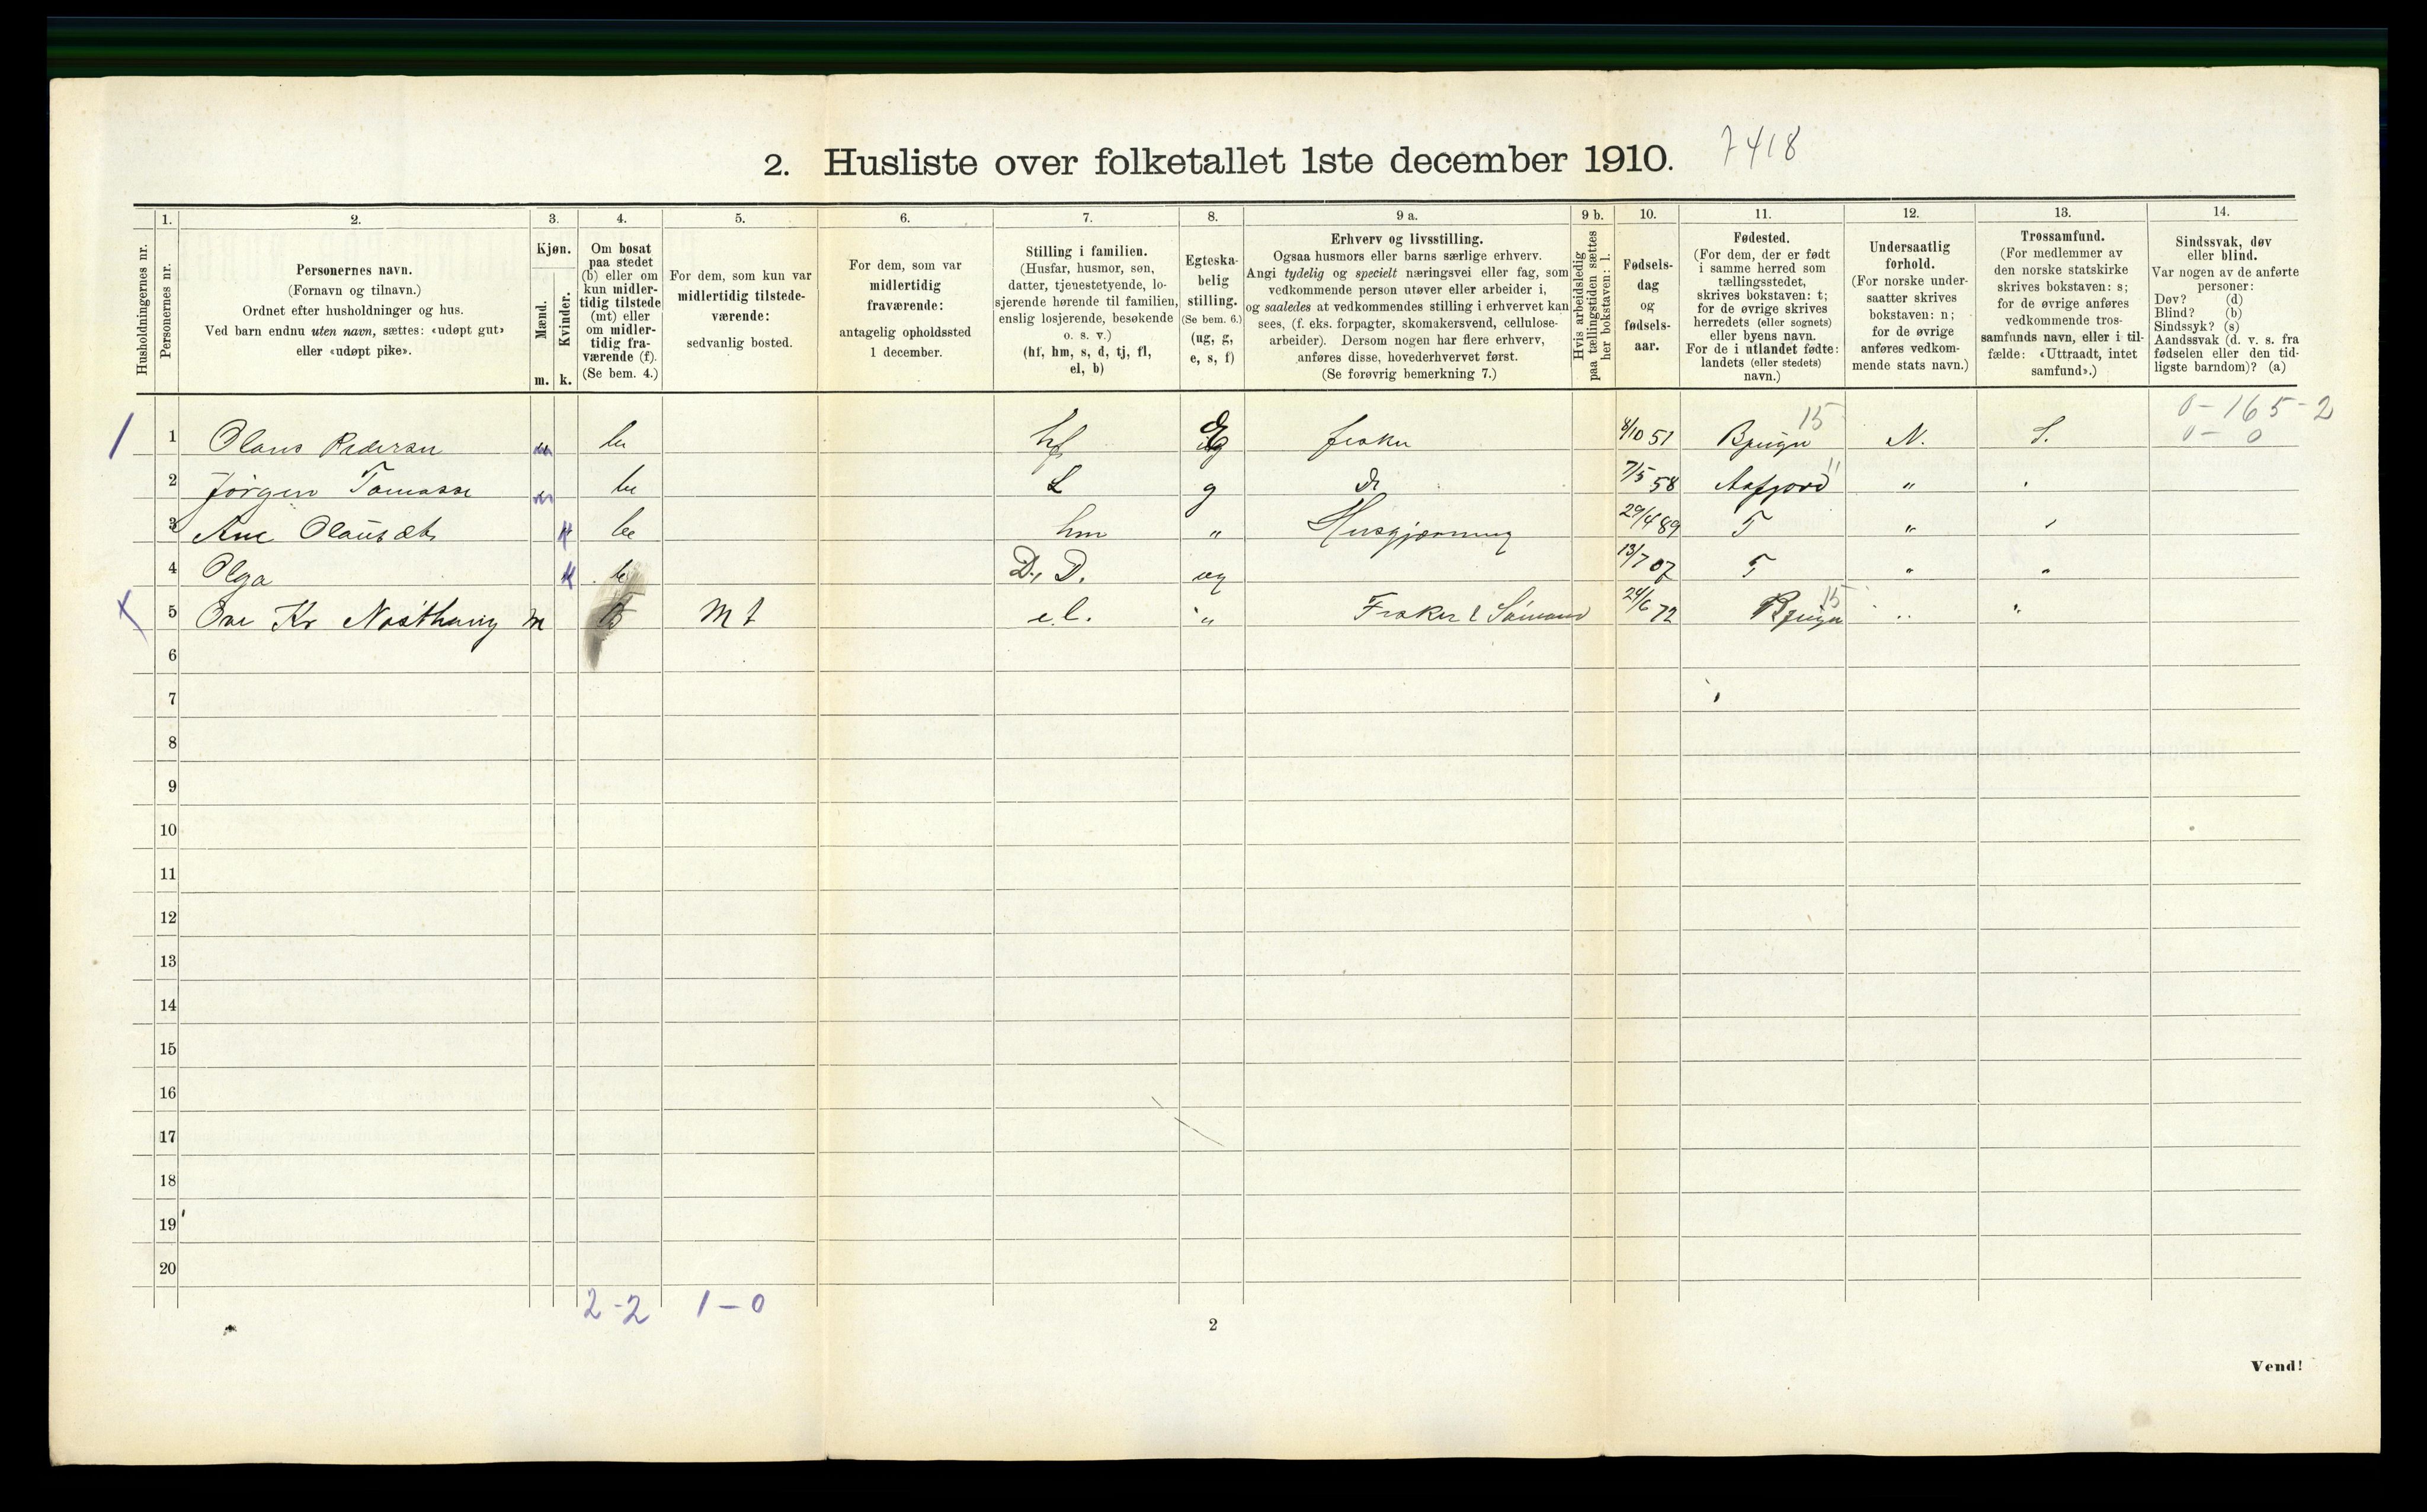 2. Husliste over folketallet 1ste december 1910. 7418
1. 2. 3. 4. 5. 6. 7. 8. 9 a. 9 b. 10. 11. 12. 13. 14.
Husholdningernes nr.
Personernes nr.
Personernes navn.
(Fornavn og tilnavn.)
Ordnet efter husholdninger og hus.
Ved barn endnu uten navn, sættes: «udøpt gut»
eller «udøpt pike».
Kjøn.
Mænd.
Kvinder.
m. k.
Om bosat
paa stedet
(b) eller om
kun midler-
tidig tilstede
(mt) eller
om midler-
tidig fra-
værende (f).
(Se bem. 4.)
For dem, som kun var
midlertidig tilstede-
værende:
sedvanlig bosted.
For dem, som var
midlertidig
fraværende:
antagelig opholdssted
1 december.
Stilling i familien.
(Husfar, husmor, søn,
datter, tjenestetyende, lo-
sjerende hørende til familien,
enslig losjerende, besøkende
o. s. v.)
(hf, hm, s, d, tj, fl,
el, b)
Egteska-
belig
stilling.
(Se bem. 6.)
(ug, g,
e, s, f)
Erhverv og livsstilling.
Ogsaa husmors eller barns særlige erhverv.
Angi tydelig og specielt næringsvei eller fag, som
vedkommende person utøver eller arbeider i,
og saaledes at vedkommendes stilling i erhvervet kan
sees, (f. eks. forpagter, skomakersvend, cellulose-
arbeider). Dersom nogen har flere erhverv,
anføres disse, hovederhvervet først.
(Se forøvrig bemerkning 7.)
Hvis arbeidsledig
paa tællingstiden sættes
her bokstaven: l.
Fødsels-
dag
og
fødsels-
aar.
Fødested.
(For dem, der er født
i samme herred som
tællingsstedet,
skrives bokstaven: t;
for de øvrige skrives
herredets (eller sognets)
eller byens navn.
For de i utlandet fødte:
landets (eller stedets)
navn.)
Undersaatlig
forhold.
(For norske under-
saatter skrives
bokstaven: n;
for de øvrige
anføres vedkom-
mende stats navn.)
Trossamfund.
(For medlemmer av
den norske statskirke
skrives bokstaven: s;
for de øvrige anføres
vedkommende tros-
samfunds navn, eller i til-
fælde: «Uttraadt, intet
samfund».)
Sindssvak, døv
eller blind.
Var nogen av de anførte
personer:
Døv? (d)
Blind? (b)
Sindssyk? (s)
Aandssvak (d. v. s. fra
fødselen eller den tid-
ligste barndom)? (a)
15 0-165-2
1 Olaus Pedersen m b hf fisker 8/10 51 Bjugn N. S. 0-0
2 Jörgen m b L g do 7/5 58 Aafjord " "
3 Ane Olausdt k b hm " Husgjerning 29/4 89 T " "
4 Olga k b D. D. ug 13/7 07 T " "
15
5 Ove Kr m b Mt el. " Fisker & Sömand 24/6 72 Bjugn " "
6
7
8
9
10
11
12
13
14
15
16
17
18
19
20
2-2 1-0
2
Vend!